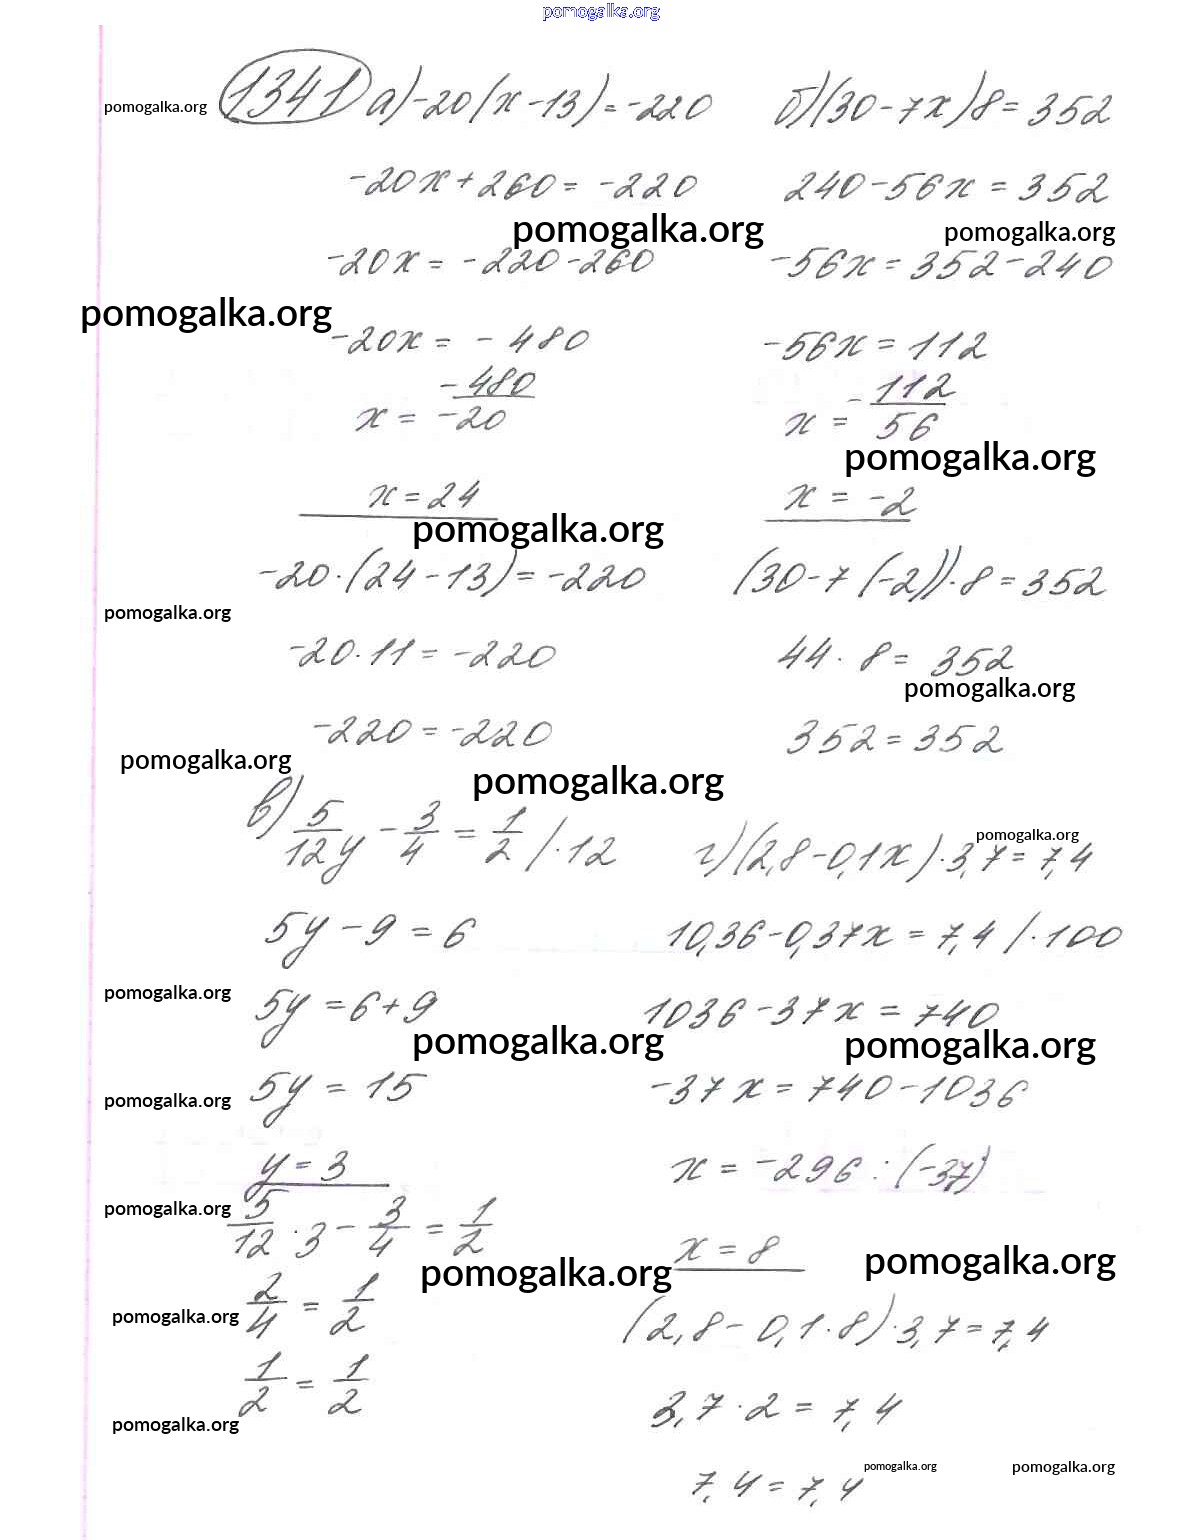 pomogalka.org
1341 а) -20(x-13)=-220 б) (30-7x)8=352
pomogalka.org
-20x+260=-220 240-56x=352
pomogalka.org pomogalka.org
-20x=-220-260 -56x=352-240
pomogalka.org
-20x=-480 -56x=112
x=-480/-20 x=-112/56
pomogalka.org
x=24 x=-2
pomogalka.org
-20·(24-13)=-220 (30-7(-2))·8=352
pomogalka.org
-20·11=-220 44·8=352
pomogalka.org
-220=-220 352=352
pomogalka.org
pomogalka.org
в) 5/12y-3/4=1/2 /·12 г) (2,8-0,1x)·3,7=7,4
pomogalka.org
5y-9=6 10,36-0,37x=7,4 /·100
pomogalka.org
5y=6+9 1036-37x=740
pomogalka.org pomogalka.org
5y=15 -37x=740-1036
pomogalka.org
y=3 x=-296:(-37)
pomogalka.org
5/12·3-3/4=1/2 x=8
pomogalka.org pomogalka.org
2/4=1/2 (2,8-0,1·8)·3,7=7,4
pomogalka.org
1/2=1/2 3,7·2=7,4
pomogalka.org
pomogalka.org pomogalka.org
7,4=7,4